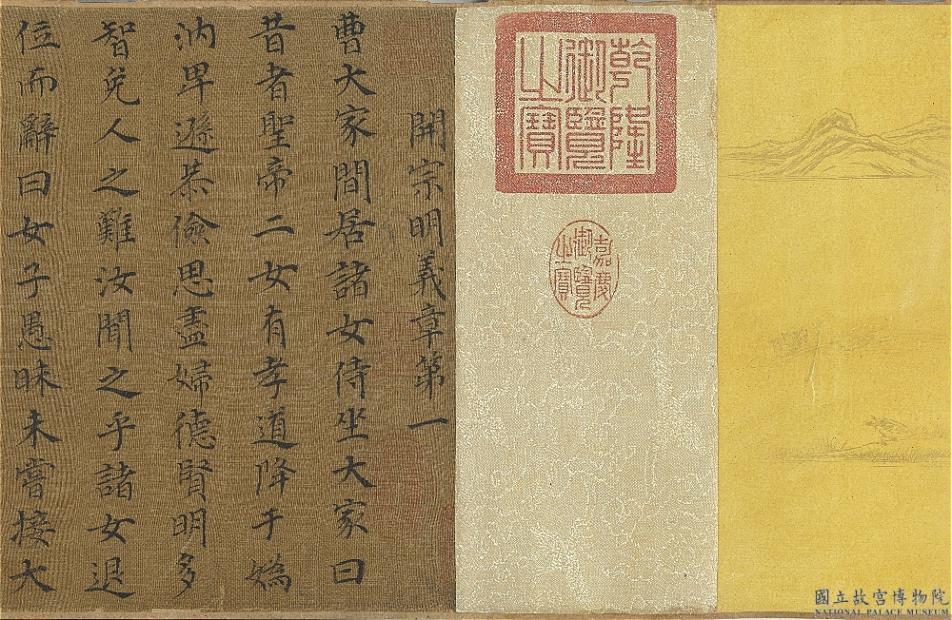 乾隆
御覽
之寶
嘉慶
御覽
之寶
開宗明義章第一
曹大家間居諸女侍坐大家曰
昔者聖帝二女有孝道降于媯
汭卑遜恭儉思盡婦德賢明多
智免人之難汝聞之乎諸女退
位而辭曰女子愚昧未嘗接大
國立故宮博物院
NATIONAL PALACE MUSEUM